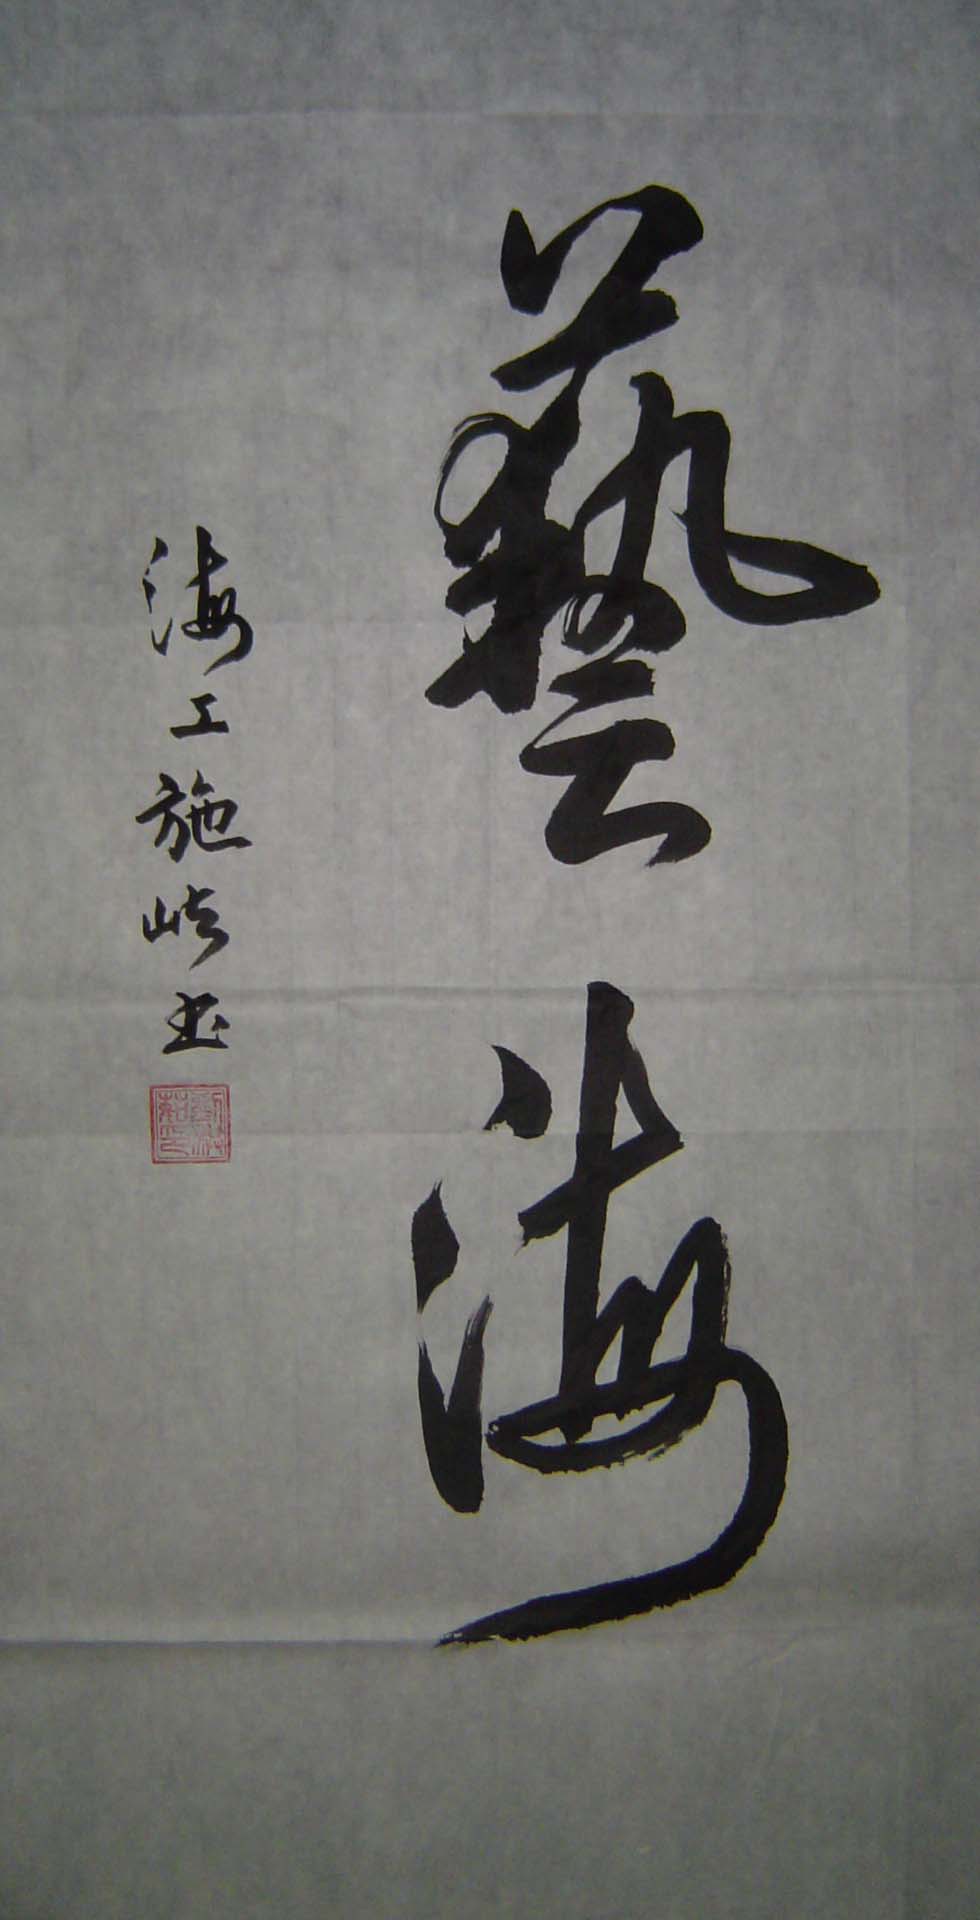 藝海
海工施屿书